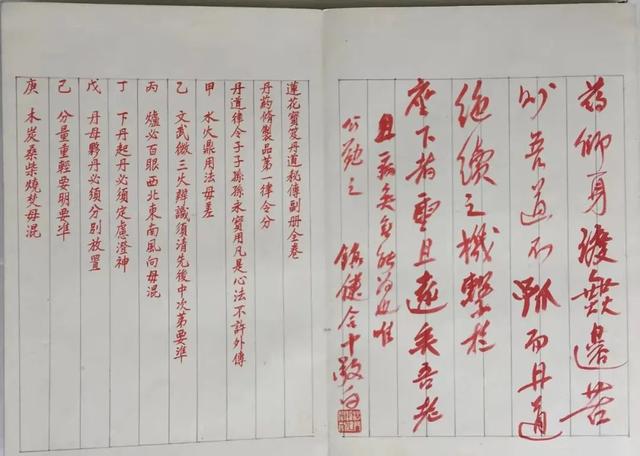 药師身渡無邊苦
吾道不孤而丹道
絕續之機繫於
座下者重且遠矣吾老
且矣能為也唯
公勉之 敬白
蓮花寶笈丹道秘傳副册全卷
丹药脩製品第一律令分
丹道律令子子孫孫永寶用凡是心法不許外傳
甲 水火鼎用法毋差
乙 文武微三火辨識須清先後中次第要準
丙 爐必百眼西北東南風向毋混
丁 下丹起丹必須定慮澄神
戊 丹母夥丹必須分别放置
己 分量重輕要明要準
庚 木炭桑柴燒焚毋混